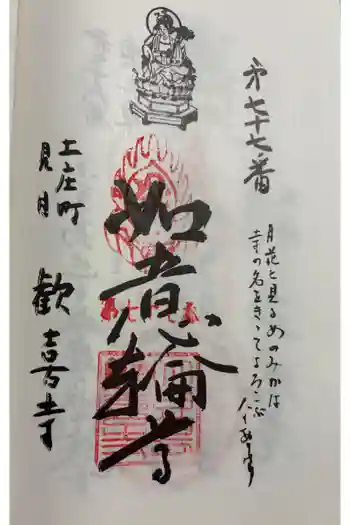 第七十七番
月花を見るめのみかは
寺の名をきゝてよろこぶ
如意輪尊
第七十七番
土庄町
見目
歓喜寺